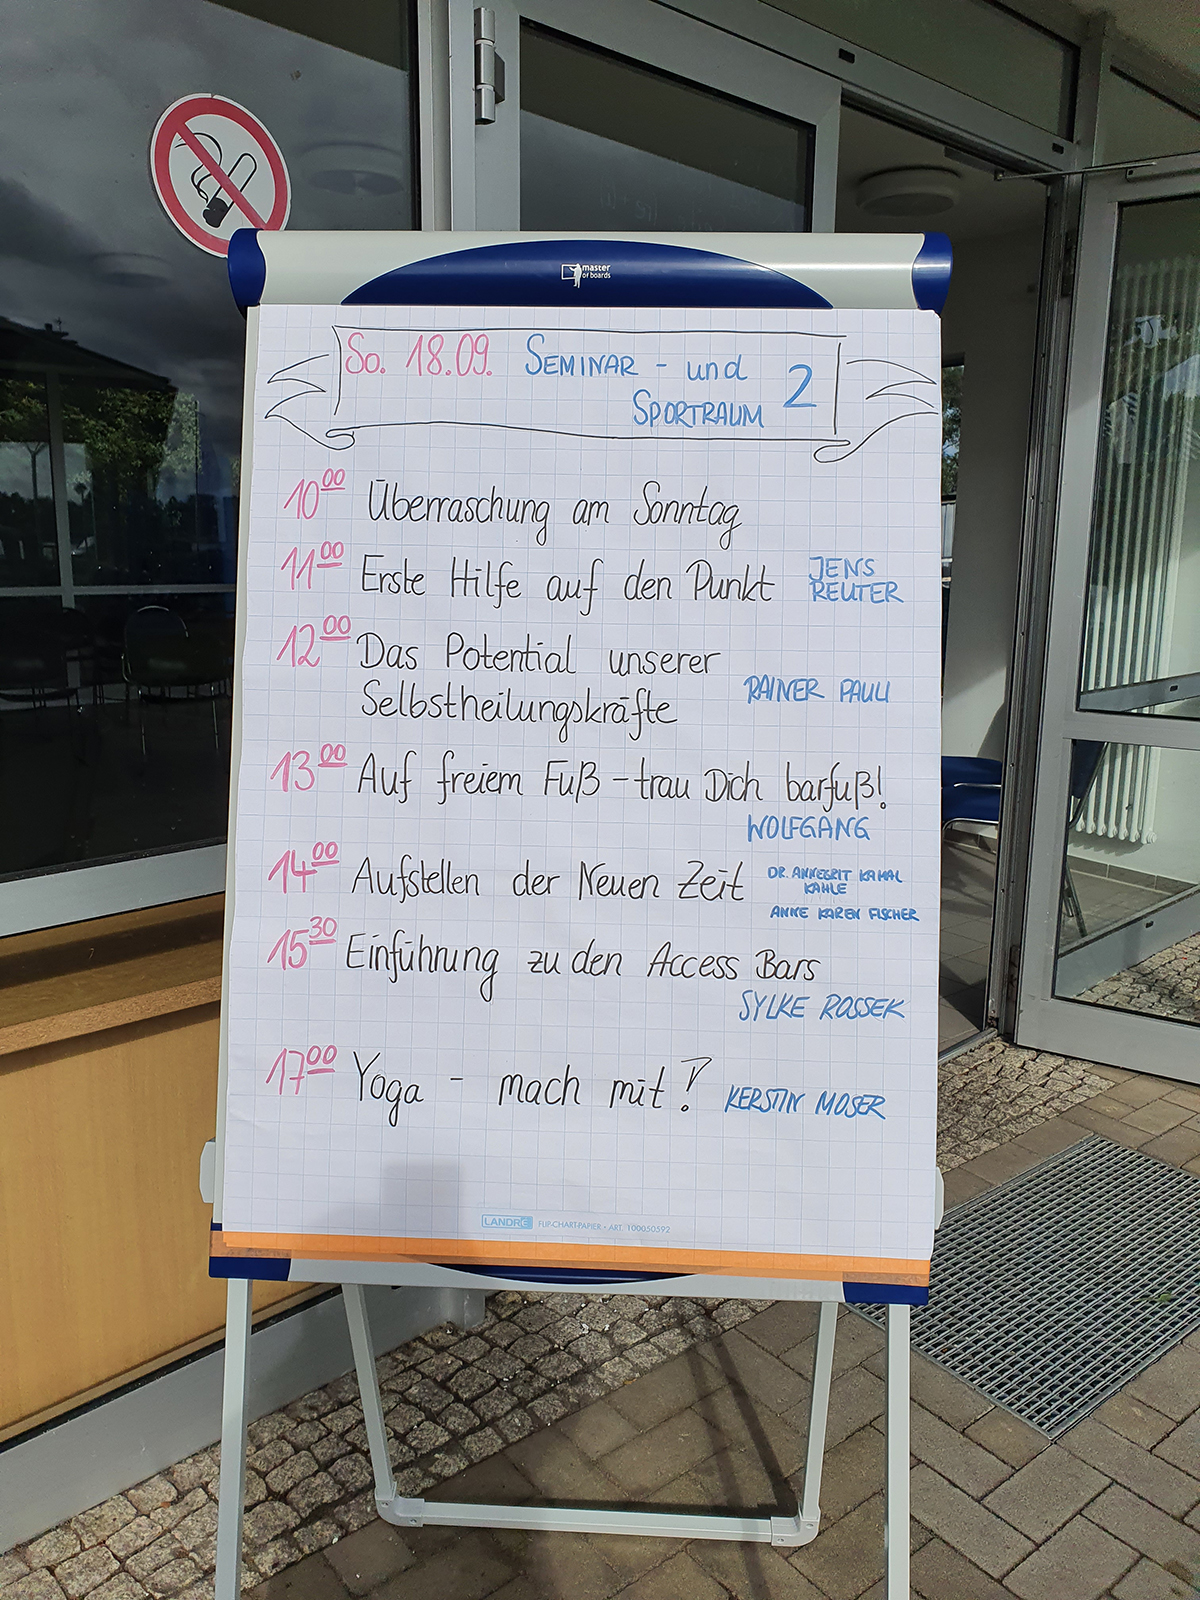 master
of boards
So. 18.09. SEMINAR - und 2
SPORTRAUM
10 00 Überraschung am Sonntag
11 00 Erste Hilfe auf den Punkt JENS
REUTER
12 00 Das Potential unserer
Selbstheilungskräfte RAINER PAULI
13 00 Auf freiem Fuß - trau Dich barfuß!
WOLFGANG
14 00 Aufstellen der Neuen Zeit DR. ANNEGRIT KAMAL
KAHLE
ANNE KAREN FISCHER
15 30 Einführung zu den Access Bars
SYLKE ROSSEK
17 00 Yoga - mach mit! KERSTIN MOSER
LANDRÉ FLIP-CHART-PAPIER • ART. 100050592